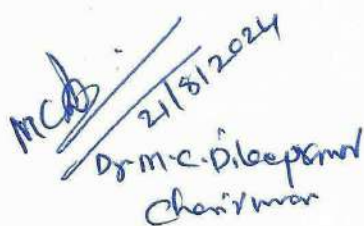 MCD
21/8/2024
Dr. M. C. Dileepkumar
Chairman